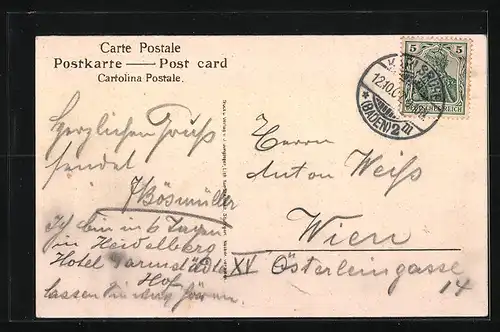 Carte Postale
Postkarte — Post card
Cartolina Postale.
5 5
KARLSRUHE
12.10.0
DEUTSCHES REICH
* (BADEN) 2 m
Herzlichen Gruss
sendet
Bösmüller
Ich bin in 6 Tagen
in Heidelberg
Hotel Darmstädter
Hof
lassen hören.
Herrn
Anton Weiss
Wien
XV Österleingasse
14